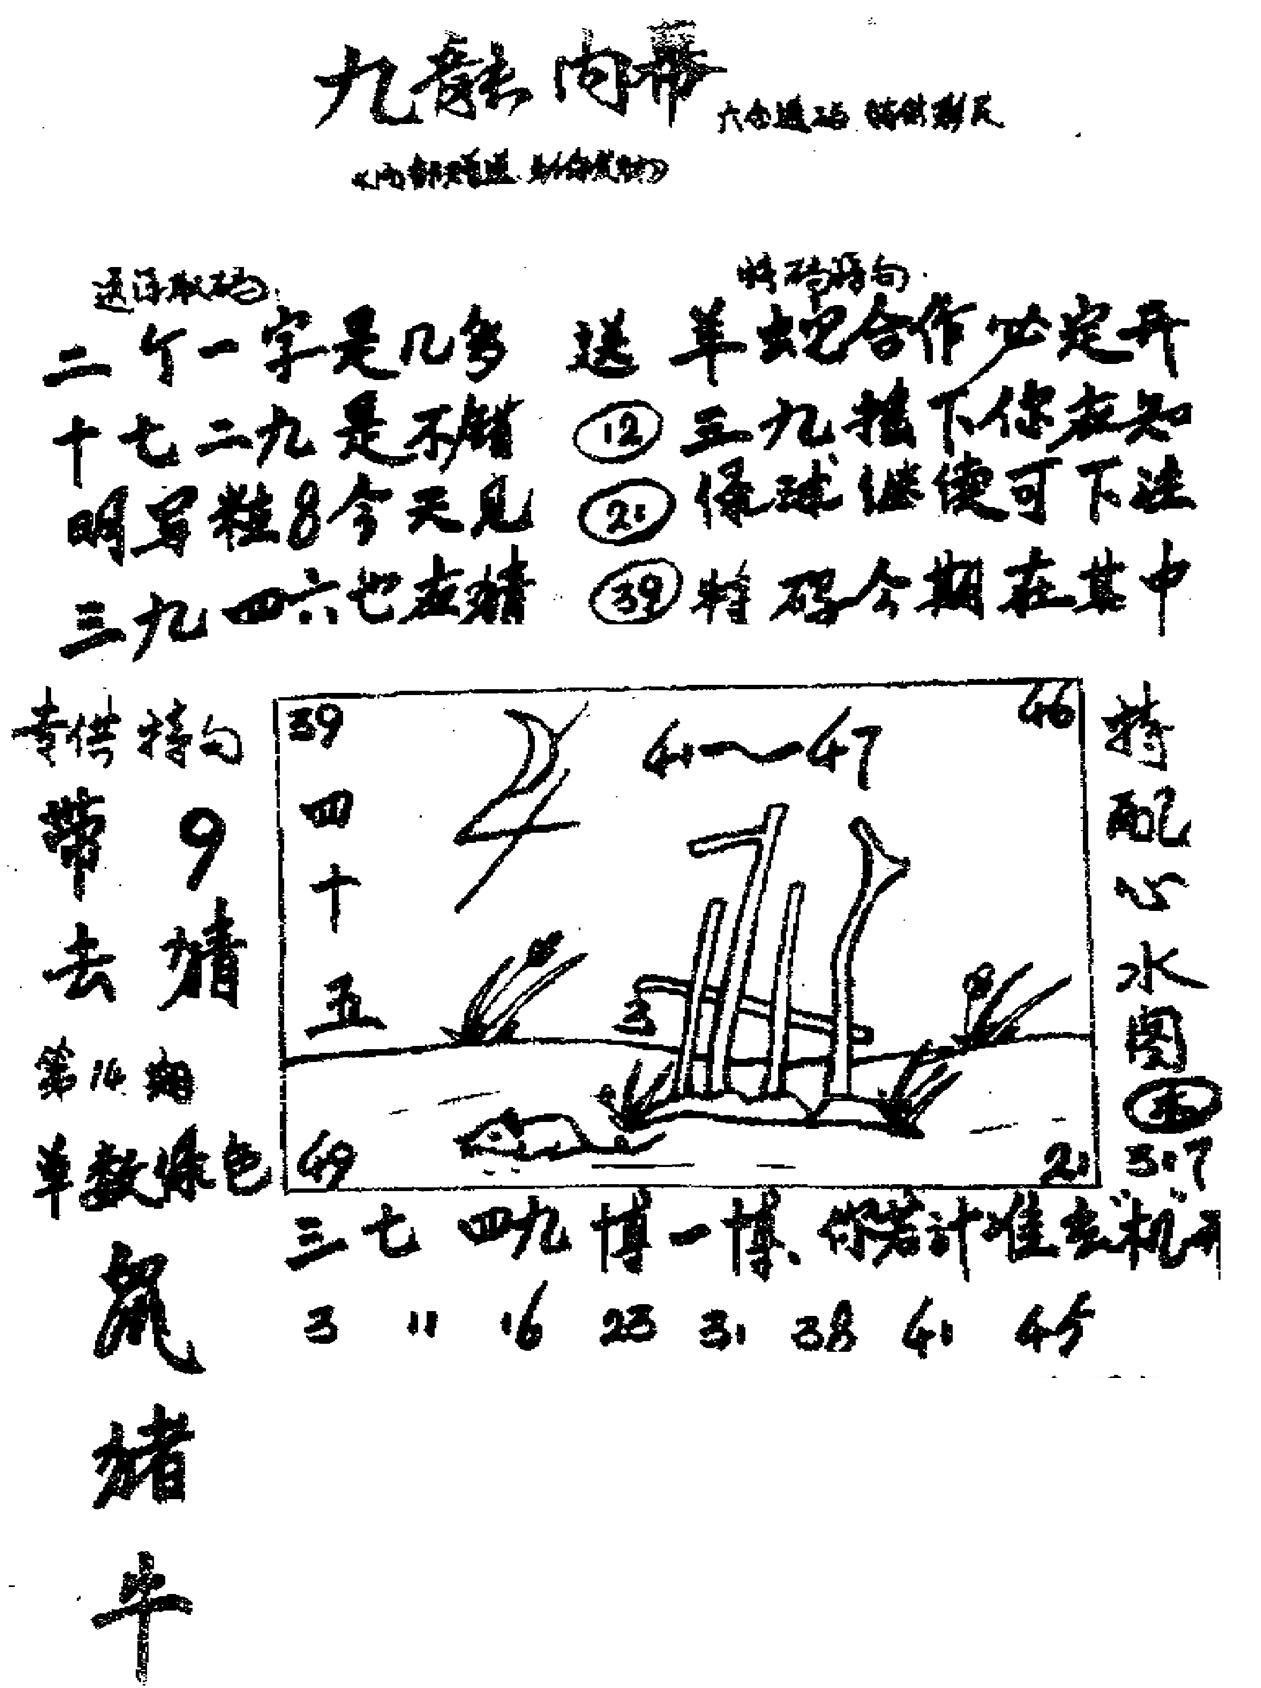 九龍内幕
六合透码 特供彩民
送 特码特句
二个一字是几多
羊蛇合作必定开
十七二九是不错
12 三九接下你在知
明写粒8今天见
21 绿球继使可下注
三九四六也在猜
39 特码今期在其中
专供特句
带9
去猜
第14期
单数绿色
鼠
猪
牛
39
46
41~47
四十五
3
49
21
特配心水图
31:7
三七四九博一博、你若计准玄"机"开
3 11 16 23 31 38 41 45